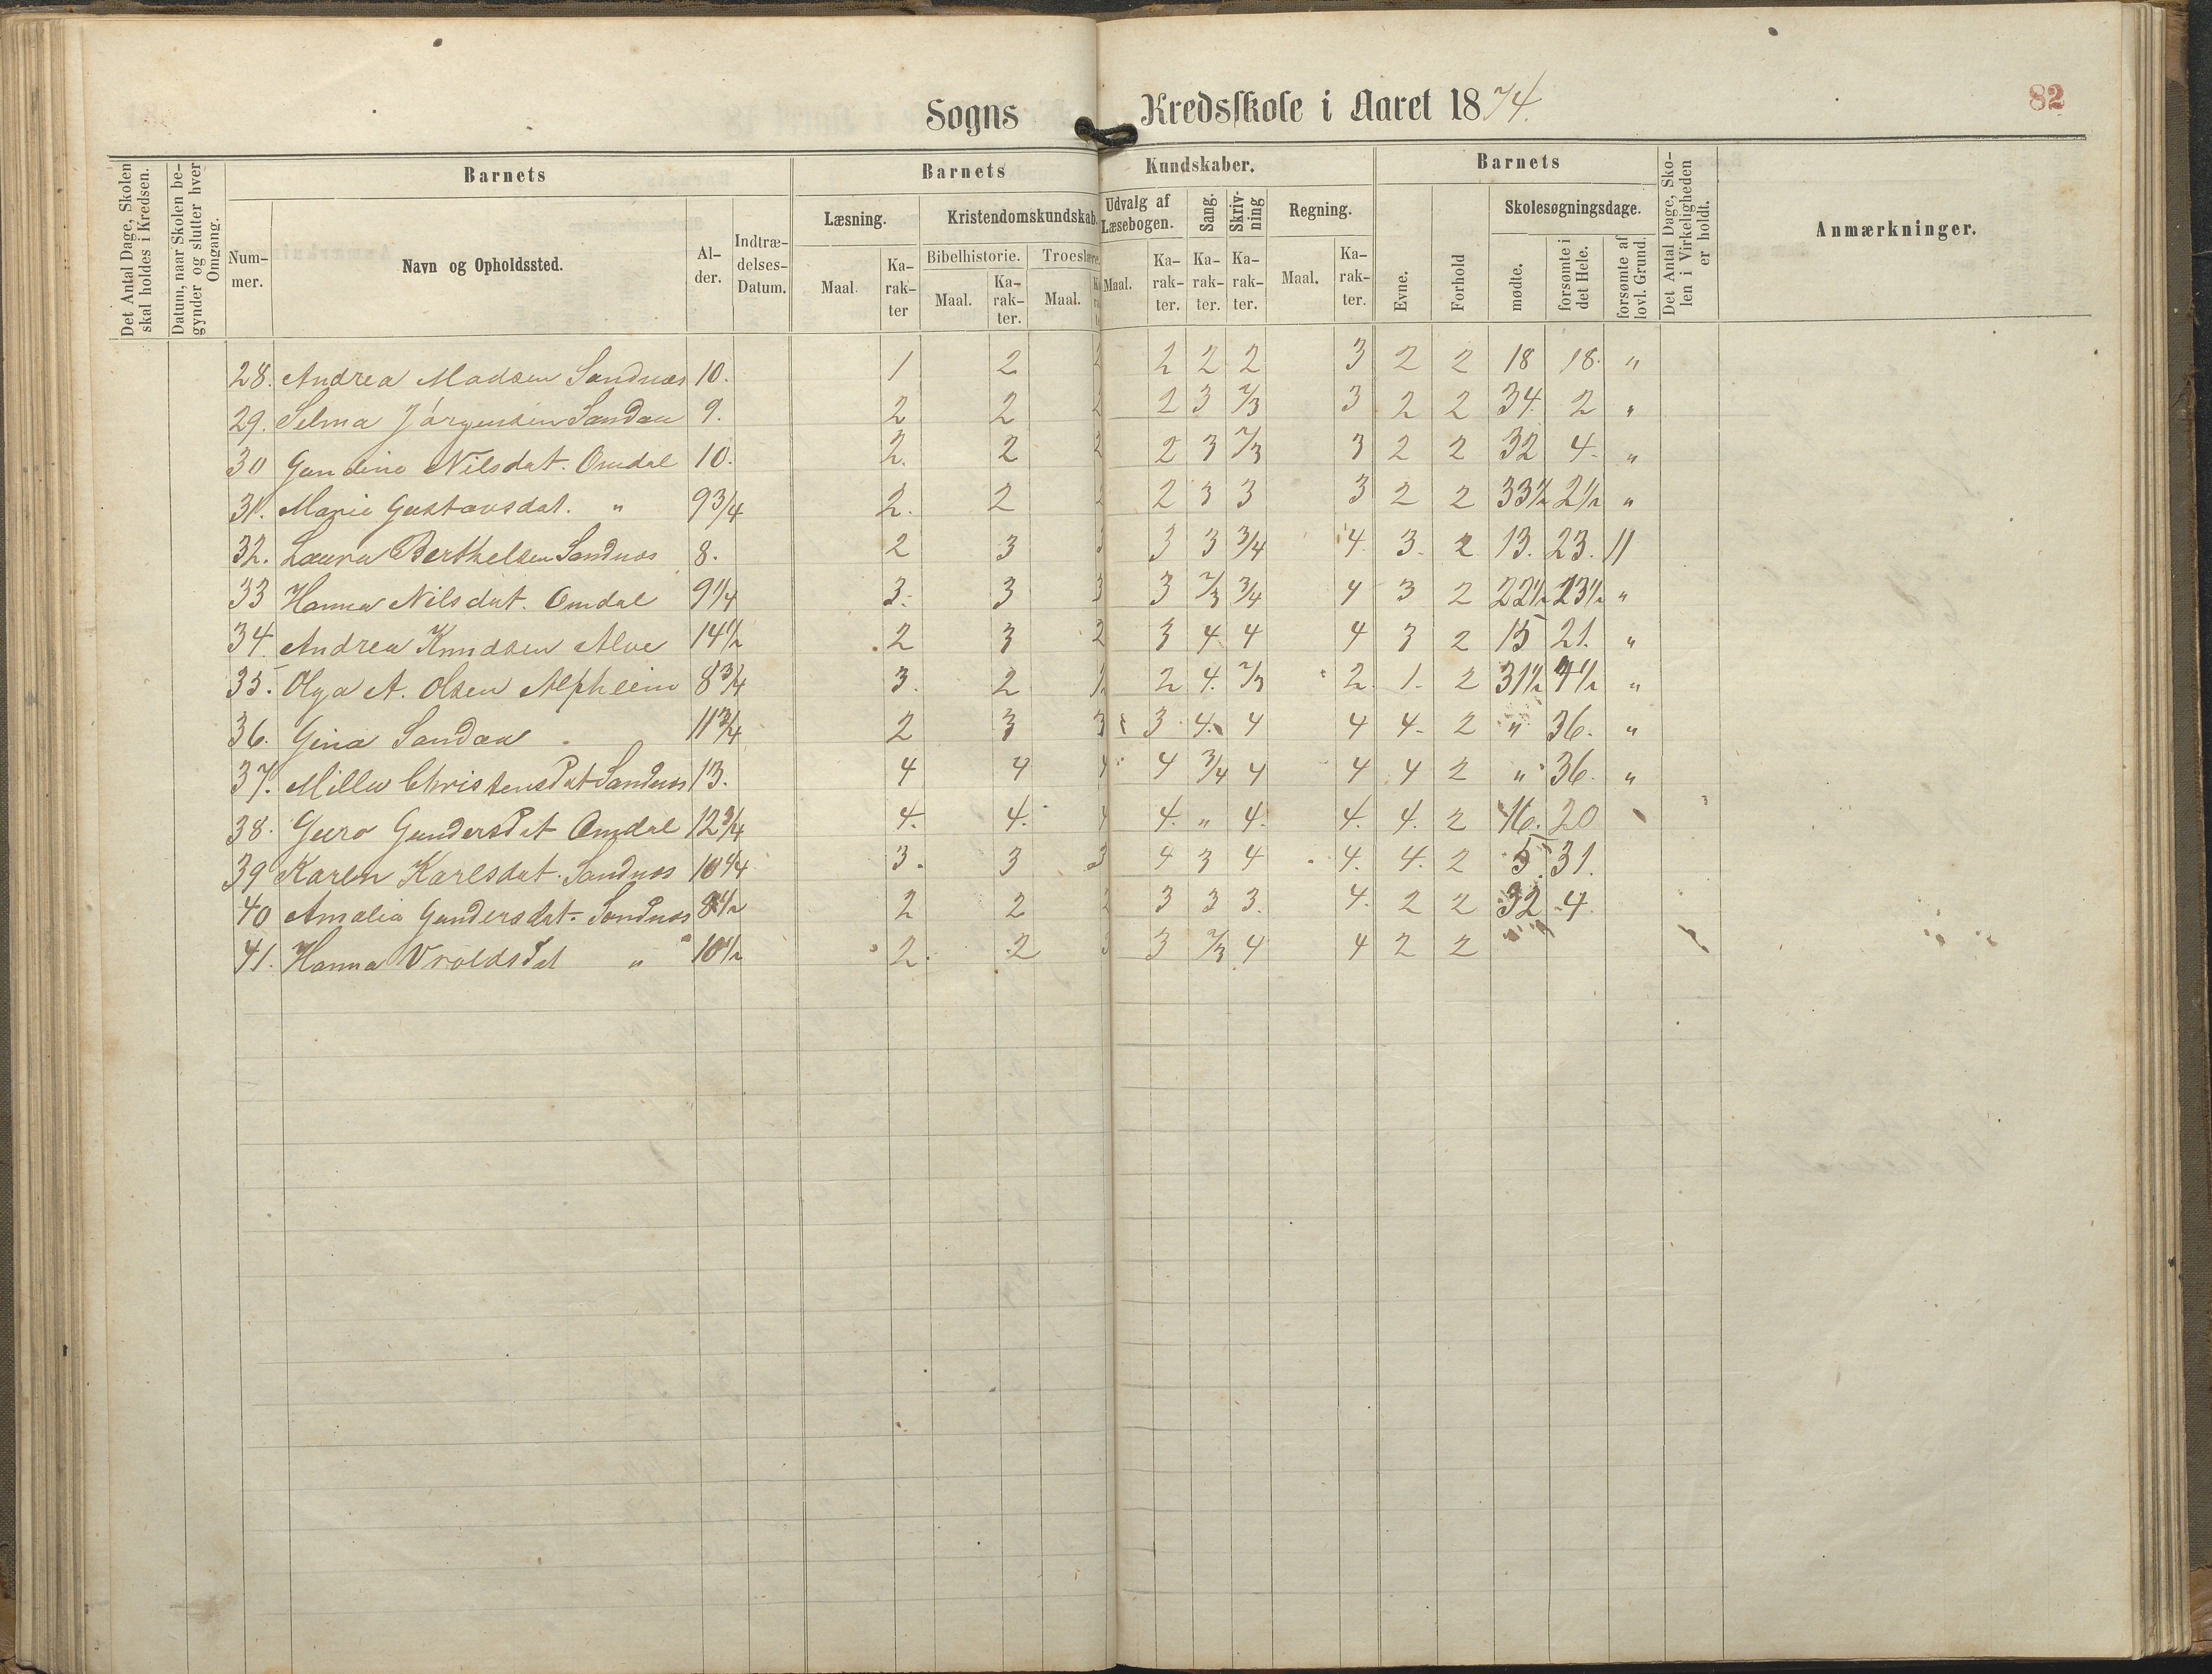 Sogns Kredsskole i Aaret 1874. 82
Det Antal Dage, Skolen skal holdes i Kredsen.
Datum, naar Skolen begynder og slutter hver Omgang.
Barnets
Barnets Kundskaber.
Barnets
Det Antal Dage, Skolen i Virkeligheden er holdt.
Anmærkninger.
Nummer.
Navn og Opholdssted.
Alder.
Indtrædelses-Datum.
Læsning.
Kristendomskundskab.
Udvalg af Læsebogen.
Sang.
Skrivning
Regning.
Evne.
Forhold
Skolesøgningsdage.
Bibelhistorie.
Troeslære.
mødte.
forsømte i det Hele.
forsømte af lovl. Grund.
Maal. Karakter Maal. Karakter. Maal. Maal. Karakter. Karakter. Karakter. Maal. Karakter.
28. Andrea Madsen Sandnæs 10. 1 2 2 2 2 2 3 2 2 18 18. "
29. Selma Jørgensen Sandau 9. 2 2 2 2 3 2/3 3 2 2 34 2 "
30 Gundine Nilsdat. Omdal 10. 2. 2 2 2 3 2/3 3 2 2 32 4. "
31. Marie Gustavsdat. " 9 3/4 2. 2 2 2 3 3 3 2 2 33 1/2 2 1/2 "
32. Laura Berthelsen Sandnæs 8. 2 3 3 3 3 3/4 4. 3. 2 13. 23. "
33 Hanna Nilsdat. Omdal 9 1/4 3. 3 3 3 2/3 3/4 4 3 2 22 1/2 13 1/2 "
34 Andrea Knudsen Alve 14 1/2 2 3 2 3 4 4 4 3 2 15 21. "
35. Olga A. Olsen Alpheim 8 3/4 3. 2 1. 2 4. 2/3 2. 1. 2 31 1/2 4 1/2 "
36. Gina Sandau 11 3/4 2 3 3 3 4. 4 4 4. 2 " 36. "
37. Milla Christensdat Sandnæs 13. 4 4 4 4 3/4 4 4 4 2 " 36. "
38. Guro Gundersdat Omdal 12 3/4 4. 4. 4 4. " 4. 4. 4. 2 16. 20
39 Karen Karlsdat. Sandnæs 10 1/4 3. 3 3 4 3 4 4. 4. 2 5. 31.
40 Amalia Gundersdat. Sandnæs 8 1/2 2 2 2 3 3 3. 4. 2 2 32 4.
41. Hanna Vroldsdat " 10 1/2 2. 2 3 3 2/3 4 4 2 2